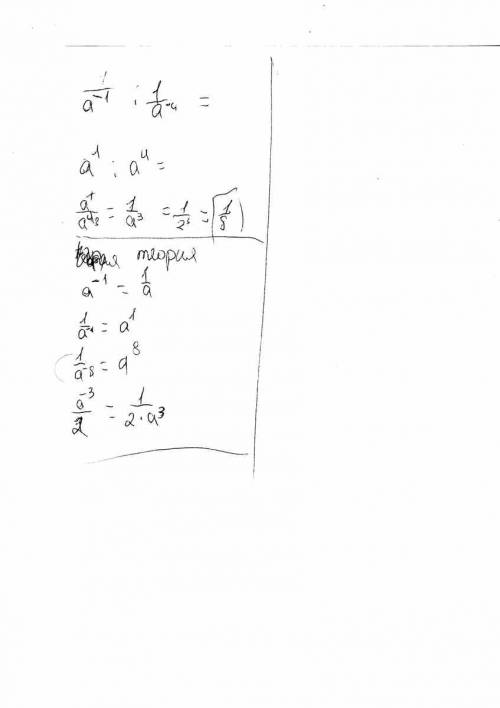 1/a⁻¹ : 1/a⁻⁴ =
a¹ : a⁴ =
a¹/a⁴ = 1/a³ = 1/2³ = 1/8
теория
a⁻¹ = 1/a
1/a⁻¹ = a¹
1/a⁻⁸ = a⁸
a⁻³/2 = 1/2·a³